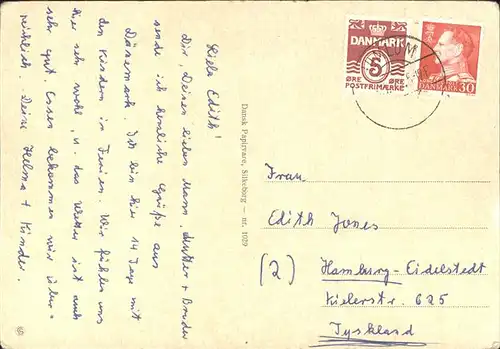 Liebe Edith!
Dir, Deinen lieben Mann, Mutter & Bruder
sende ich herzliche Grüße aus
Dänemark. Ich bin hier 14 Tage mit
den Kindern in Ferien. Wir fühlen uns
hier sehr wohl, u. das Wetter ist auch
sehr gut. Essen bekommen wir über-
reichlich. Deine Helma & Kinder.
Dansk Papirvare, Silkeborg — nr. 1029
DANMARK
5
ØRE ØRE
POSTFRIMÆRKE
DANMARK 30
Frau
Edith Jones
(2) Hamburg-Eidelstedt
Kielerstr. 625
Tyskland